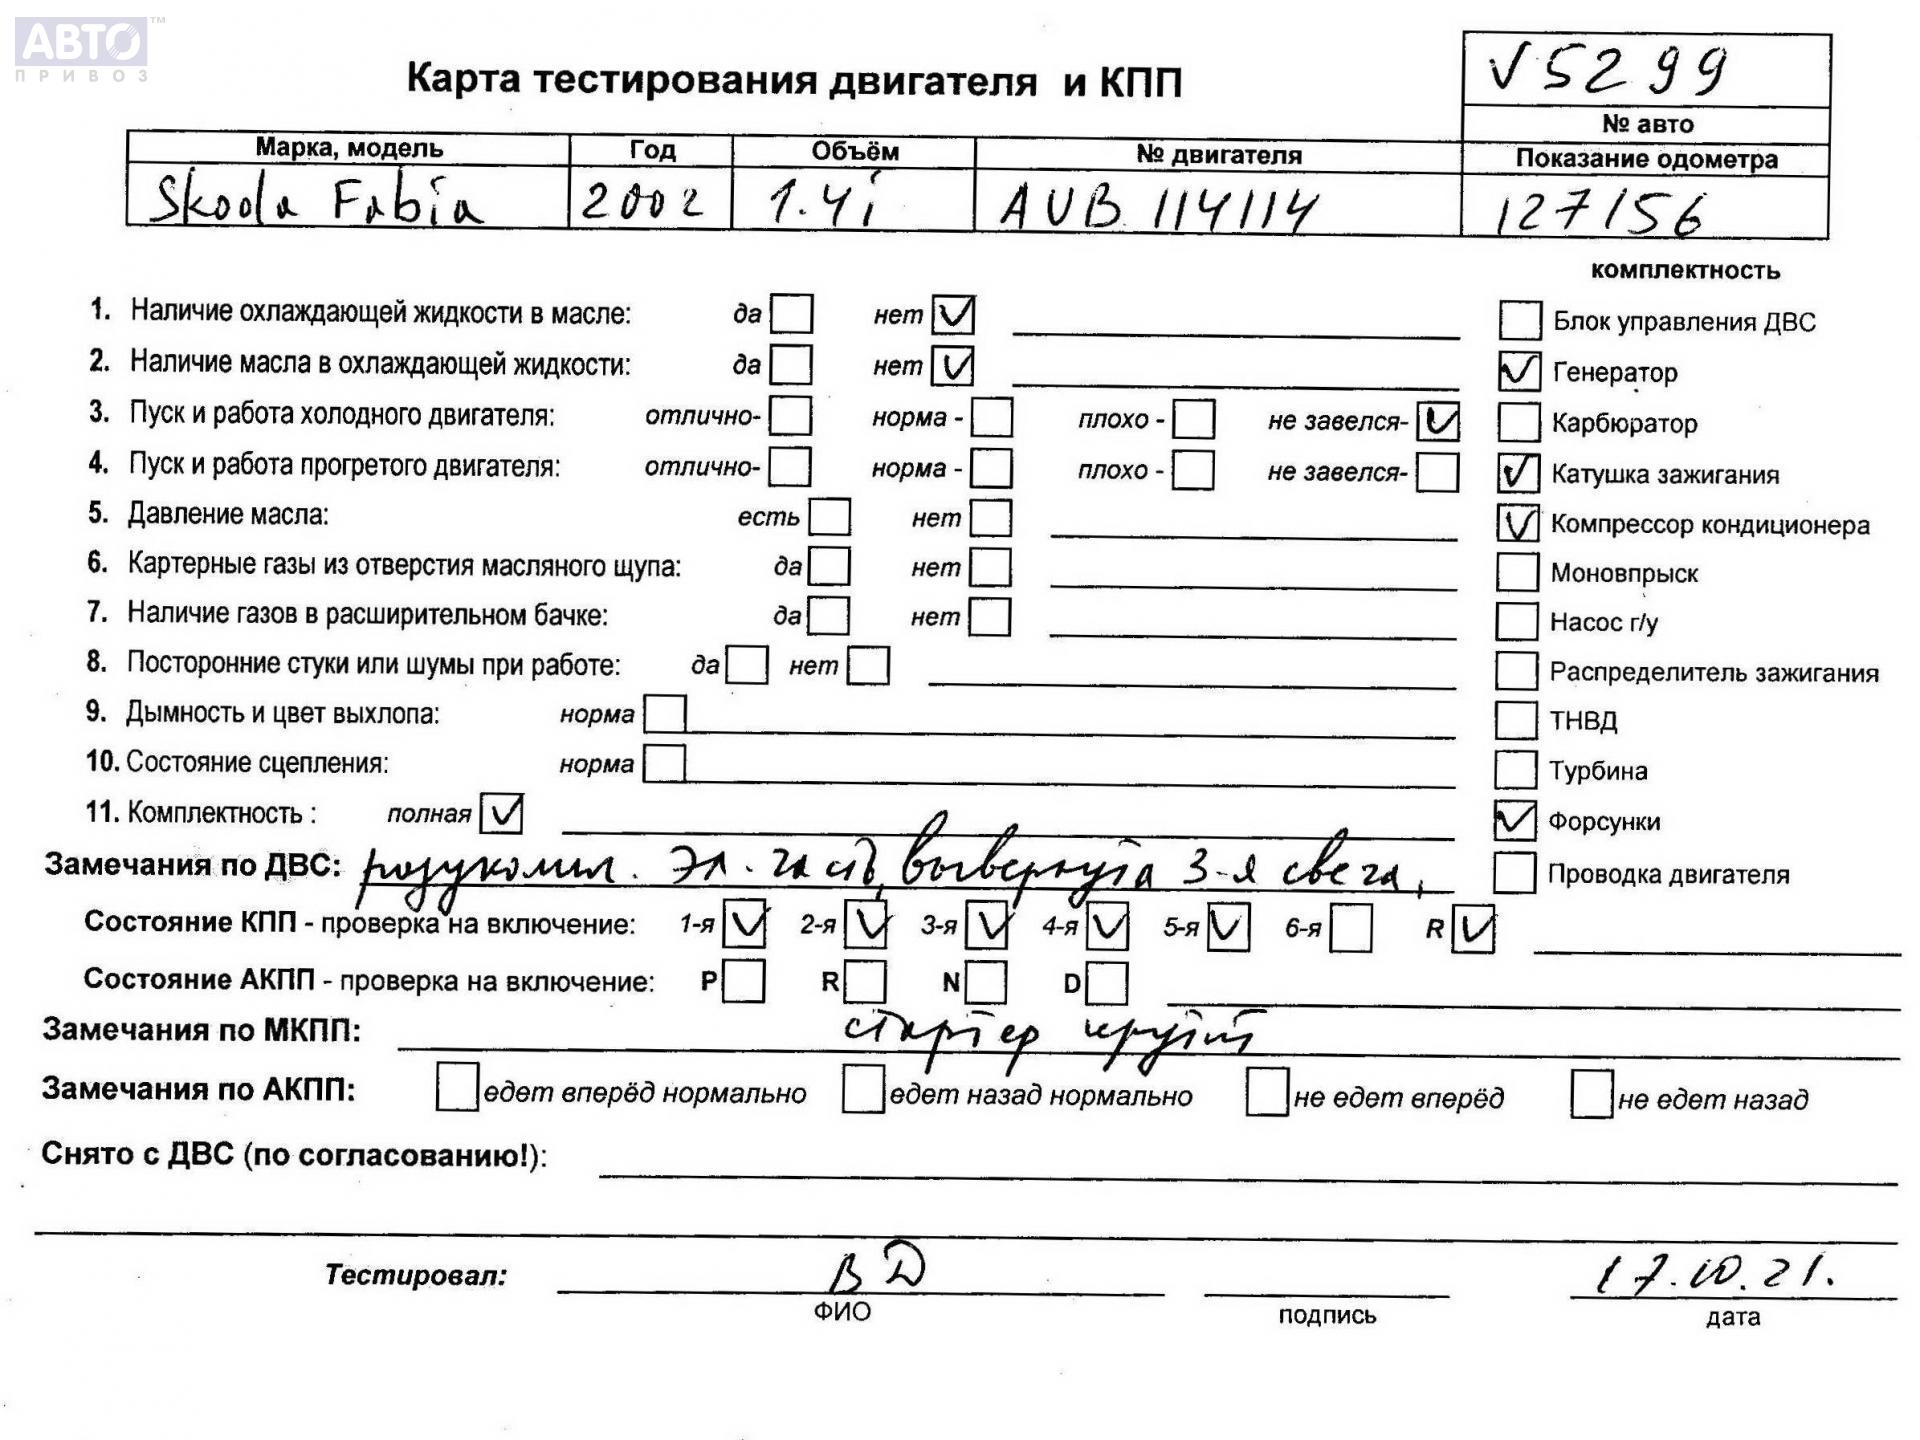 АВТО ™
ПРИВОЗ
Карта тестирования двигателя и КПП
√5299
№ авто
Марка, модель Год Объём № двигателя Показание одометра
Skoda Fabia 2002 1.4i AUB 114114 127156
комплектность
1. Наличие охлаждающей жидкости в масле: да нет ✓
Блок управления ДВС
2. Наличие масла в охлаждающей жидкости: да нет ✓
✓ Генератор
3. Пуск и работа холодного двигателя: отлично- норма - плохо - не завелся- ✓
Карбюратор
4. Пуск и работа прогретого двигателя: отлично- норма - плохо - не завелся-
✓ Катушка зажигания
5. Давление масла: есть нет
✓ Компрессор кондиционера
6. Картерные газы из отверстия масляного щупа: да нет
Моновпрыск
7. Наличие газов в расширительном бачке: да нет
Насос г/у
8. Посторонние стуки или шумы при работе: да нет
Распределитель зажигания
9. Дымность и цвет выхлопа: норма
ТНВД
10. Состояние сцепления: норма
Турбина
11. Комплектность : полная ✓
✓ Форсунки
Замечания по ДВС: разукомпл. эл. часть, вывернута 3-я свеча,
Проводка двигателя
Состояние КПП - проверка на включение: 1-я ✓ 2-я ✓ 3-я ✓ 4-я ✓ 5-я ✓ 6-я R ✓
Состояние АКПП - проверка на включение: P R N D
Замечания по МКПП: стартер крутит
Замечания по АКПП: едет вперёд нормально едет назад нормально не едет вперёд не едет назад
Снято с ДВС (по согласованию!):
Тестировал: ВД 17.10.21.
ФИО подпись дата